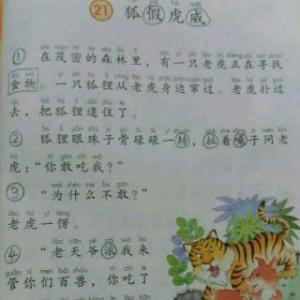 21 狐假虎威
① 在茂密的森林里，有一只老虎正在寻找
食物。一只狐狸从老虎身边窜过。老虎扑过
去，把狐狸逮住了。
② 狐狸眼珠子骨碌碌一转，扯着嗓子问老
虎：“你敢吃我？”
③ “为什么不敢？”
老虎一愣。
④ “老天爷派我来
管你们百兽，你吃了